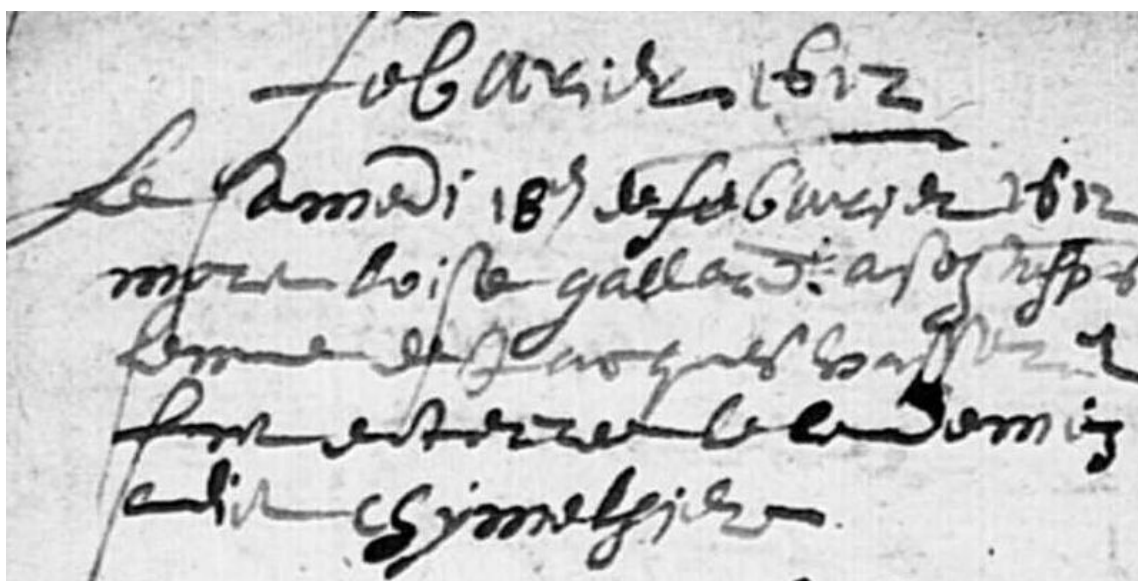 febvrier 1612
Le samedi 18 de febvrier 1612
mourut loise gallard
femme de Jacques
fust enterree le lendemain
audit chymetiere